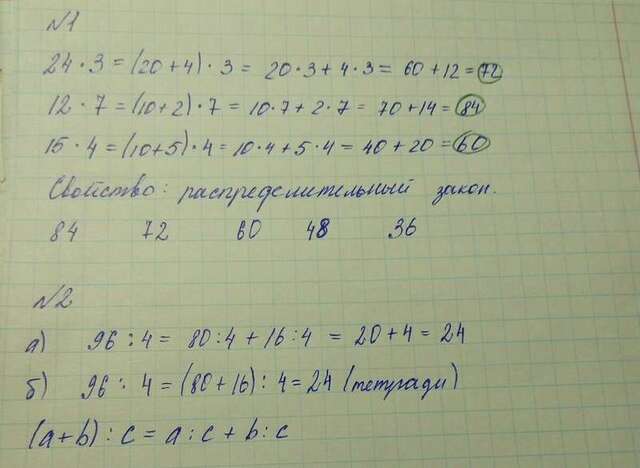 №1
24 · 3 = (20 + 4) · 3 = 20 · 3 + 4 · 3 = 60 + 12 = 72
12 · 7 = (10 + 2) · 7 = 10 · 7 + 2 · 7 = 70 + 14 = 84
15 · 4 = (10 + 5) · 4 = 10 · 4 + 5 · 4 = 40 + 20 = 60
Свойство: распределительный закон.
84 72 60 48 36
№2
а) 96 : 4 = 80 : 4 + 16 : 4 = 20 + 4 = 24
б) 96 : 4 = (80 + 16) : 4 = 24 (тетради)
(a + b) : c = a : c + b : c